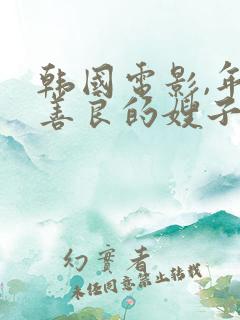 韩国电影,年
善良的嫂子
幻实者
未经同意禁止转载